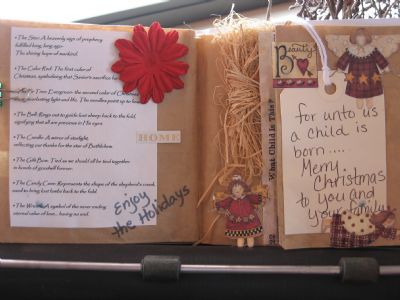 • The Star: A heavenly sign of prophecy
fulfilled long, long ago-
The shining hope of mankind.
• The Color Red: The first color of
Christmas, symbolizing that Savior's sacrifice for
Tree Evergreen- the second color of Christmas
everlasting light and life. The needles point up to
• The Bell: Rings out to guide lost sheep back to the fold,
signifying that all are precious in His eyes
• The Candle: A mirror of starlight,
reflecting our thanks for the star of Bethlehem.
• The Gift Bow: Tied as we should all be tied together
in bonds of goodwill forever.
• The Candy Cane: Represents the shape of the shepherd's crook,
used to bring lost lambs back to the fold.
• The Wreath: A symbol of the never ending
eternal value of love... having no end.
HOME
Enjoy
the Holidays
What Child is This?
Beauty
for unto us
a child is
born....
Merry
Christmas
to you and
your family